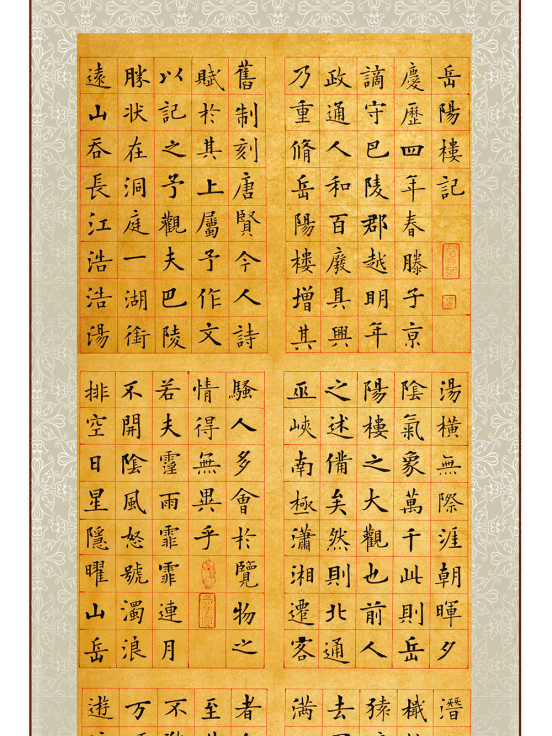 岳陽樓記
慶歷四年春滕子亰
謫守巴陵郡越明年
政通人和百廢具興
乃重脩岳陽樓增其
舊制刻唐賢今人詩
賦於其上屬予作文
以記之予觀夫巴陵
勝狀在洞庭一湖銜
遠山吞長江浩浩湯
湯橫無際涯朝暉夕
陰氣象萬千此則岳
陽樓之大觀也前人
之述備矣然則北通
巫峽南極瀟湘遷客
騷人多會於覽物之
情得無異乎
若夫霪雨霏霏連月
不開陰風怒號濁浪
排空日星隱曜山岳
潛
檝
猿
去
满
者
至
不
万
遊